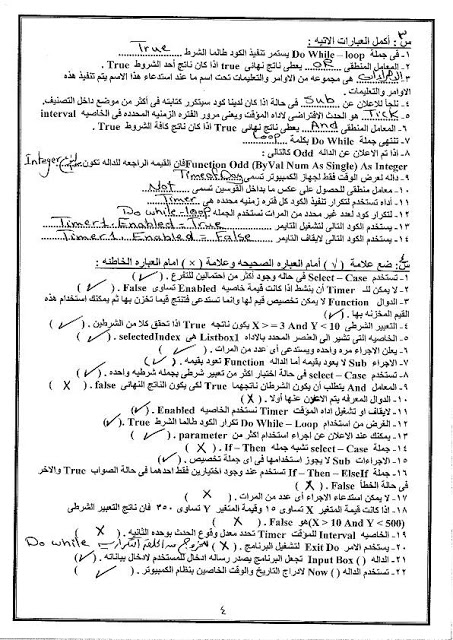 س٣: أكمل العبارات الاتيه :
١- فى جملة Do While – loop يستمر تنفيذ الكود طالما الشرط True
٢- المعامل المنطقى OR يعطى ناتج نهائى true اذا كان ناتج أحد الشروط True .
٣- هى مجموعه من الاوامر والتعليمات تحت اسم ما عند استدعاء هذا الاسم يتم تنفيذ هذه
الاوامر والتعليمات .
٤- نلجأ للاعلان عن Sub فى حالة اذا كان لدينا كود سيتكرر كتابته فى أكثر من موضع داخل التصنيف.
٥- Teck هو الحدث الافتراضى لاداه المؤقت ويعنى مرور الفتره الزمنيه المحدده فى الخاصيه interval
٦- المعامل المنطقى And يعطى ناتج نهائى True اذا كان ناتج كافة الشروط True .
٧- تنتهى جملة Do While بكلمة loop
٨- اذا تم الاعلان عن الدالة Odd كالتالى :
Function Odd (ByVal Num As Single) As Integer فان القيمه الراجعه للداله تكون Integer
٩- داله لعرض الوقت فقط لجهاز الكمبيوتر تسمى TimeofDay
١٠- معامل منطقى للحصول على عكس ما بداخل القوسين تسمى Not
١١- أداه تستخدم لتكرار تنفيذ الكود كل فتره زمنيه محدده هى Timer
١٢- لتكرار كود لعدد غير محدد من المرات نستخدم الجمله Do while-loop
١٣- يستخدم الكود التالى لتشغيل التايمر Timer1. Enabled = True
١٤- يستخدم الكود التالى لايقاف التايمر Timer1. Enabled = False
س٤: ضع علامة ( √ ) أمام العباره الصحيحه وعلامة ( × ) امام العباره الخاطئه :
١- تستخدم Select – Case فى حالة وجود أكثر من احتمالين للتفرع . ( ✓ )
٢- لا يمكن للـ Timer أن ينشط اذا كانت قيمة خاصية Enabled تساوى False . ( ✓ )
٣- الدوال Function لا يمكن تخصيص قيم لها وانما تستدعى فتنتج قيما تخزن بها ثم يمكنك استخدام هذه
القيم المخزنه بها . ( ✓ )
٤- التعبير الشرطى X > = 3 And Y < 10 يكون ناتجه True اذا تحقق كلا من الشرطين . ( ✓ )
٥- الخاصيه التى تشير الى العنصر المحدد بالاداه Listbox1 هى selectedIndex . ( ✓ )
٦- يعلن الاجراء مره واحده ويستدعى أى عدد من المرات . ( ✓ )
٧- الاجراء Sub لا يعود بقيمه أما الداله Function تعود بقيمه . ( ✓ )
٨- تستخدم select – Case فى حالة اختبار أكثر من تعبير شرطى بجمله شرطيه واحده . ( ✓ )
٩- المعامل And يتطلب أن يكون الشرطان ناتجهما True لكى يكون الناتج النهائى false . ( X )
١٠- الدوال المعرفه يتم الاعلان عنها أولا . ( X )
١١- لايقاف او تشغيل اداه المؤقت Timer نستخدم الخاصيه Enabled . ( ✓ )
١٢- الغرض من استخدام Do While – Loop تكرار الكود طالما الشرط True . ( ✓ )
١٣- يمكنك عند الاعلان عن اجراء استخدام اكثر من parameter . ( ✓ )
١٤- جملة select – Case تشبه جملة If – Then . ( X )
١٥- الاجراءات Sub لا يجوز استخدامها فى اى جملة تخصيص . ( ✓ )
١٦- جملة If – Then – ElseIf تستخدم عند وجود اختيارين فقط احدهما فى حالة الصواب True والاخر
فى حالة الخطأ False . ( X )
١٧- لا يمكن استدعاء الاجراء أى عدد من المرات . ( X )
١٨- اذا كانت قيمة المتغير X تساوى ١٥ وقيمة المتغير Y تساوى ٣٥٠ فان ناتج التعبير الشرطى
(X > 10 And Y < 500) هو False . ( X )
١٩- الخاصيه Interval للمؤقت Timer تحدد معدل وقوع الحدث بوحده الثانيه . ( X )
٢٠- يستخدم الامر Exit Do لتشغيل البرنامج . ( X ) Do while
٢١- الداله Input Box () تجعل البرنامج يصدر رساله ادخال للمستخدم لادخال بياناته . ( ✓ )
٢٢- تستخدم الداله Now () لادراج التاريخ والوقت الخاصين بنظام الكمبيوتر . ( ✓ )
٤